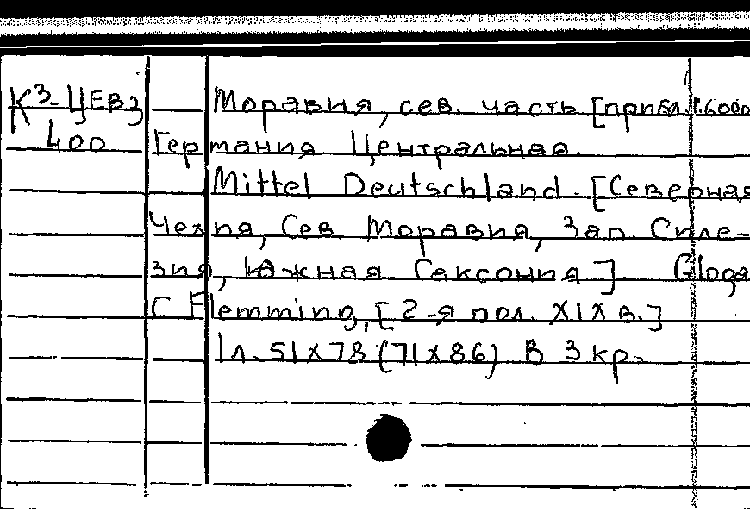 К3-ЦЕВЗ
400
Моравия, сев. часть [прибл. 1:600
Германия Центральная.
Mittel Deutschland. [Северная
Чехия, Сев Моравия, Зап. Силе-
зия, Южная Саксония] Gloga
C Flemming, [2-я пол. XIX в.]
1л. 51x78 (71x86) В 3 кр.